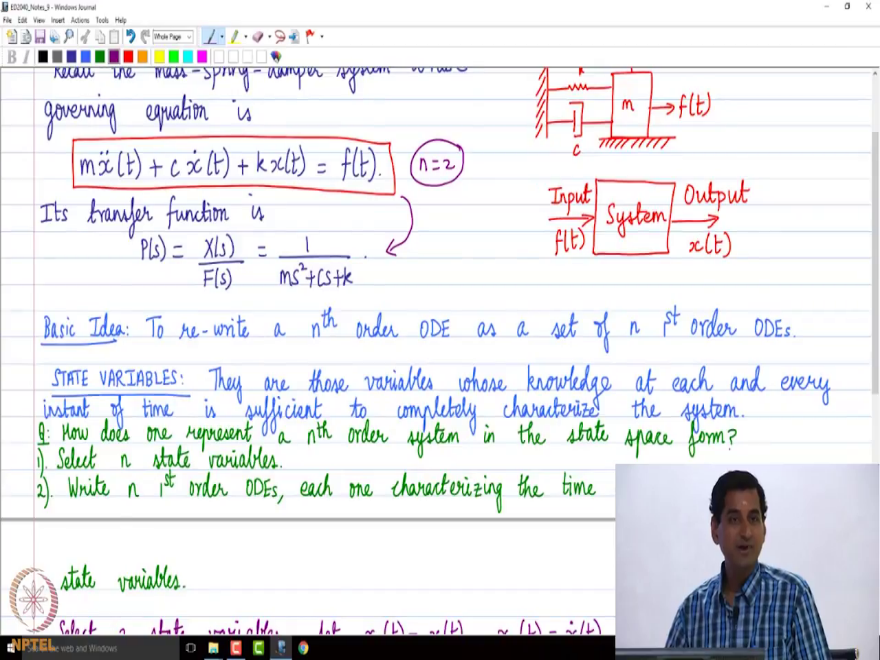 ED2040_Notes_9 - Windows Journal
File Edit View Insert Actions Tools Help
Whole Page
B I
Recall the mass-spring-damper system
governing equation is
mẍ(t) + cẋ(t) + kx(t) = f(t). n=2
Its transfer function is
P(s) = X(s)/F(s) = 1/(ms²+cs+k).
m f(t)
c
Input System Output
f(t) x(t)
Basic Idea: To re-write a nth order ODE as a set of n 1st order ODEs.
STATE VARIABLES: They are those variables whose knowledge at each and every
instant of time is sufficient to completely characterize the system.
Q: How does one represent a nth order system in the state space form?
1). Select n state variables.
2). Write n 1st order ODEs, each one characterizing the time
state variables.
Select 2 state variables
NPTEL
the web and Windows